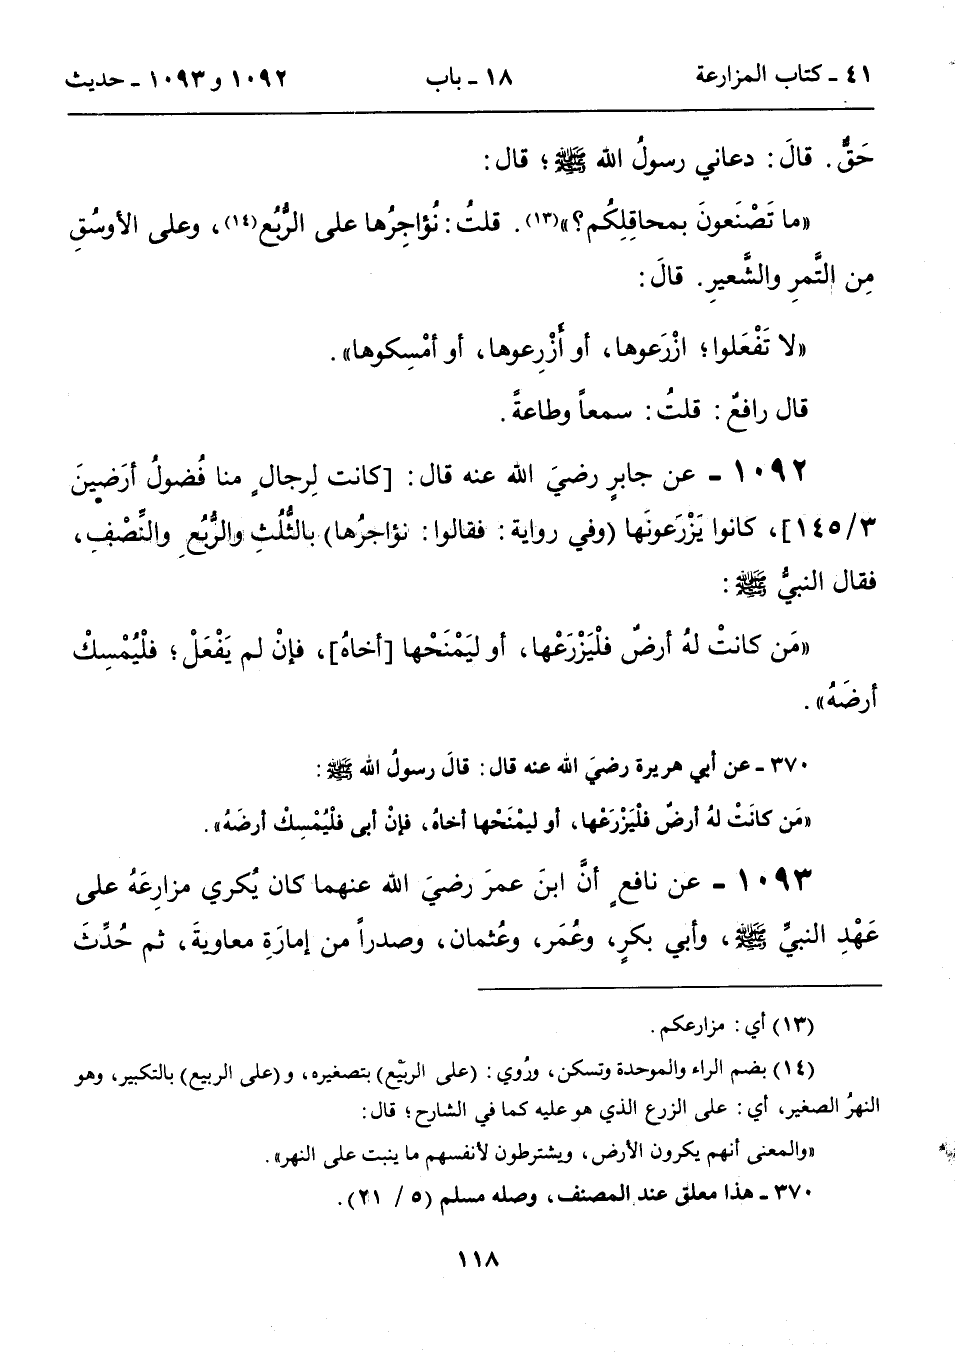 ٤١ ـ كتاب المزارعة ١٨ ـ باب ١٠٩٢ و ١٠٩٣ ـ حديث
حَقٌّ . قالَ : دعاني رسولُ الله ﷺ ؛ قال :
«ما تَصْنَعونَ بمحاقِلِكُم؟»(١٣). قلتُ : نُؤاجِرُها على الرُّبُع(١٤)، وعلى الأوسُقِ
مِن التَّمرِ والشَّعيرِ . قالَ :
«لا تَفْعَلوا؛ ازْرَعوها، أو أَزْرِعوها، أو أمْسِكوها» .
قال رافعٌ : قلتُ : سمعاً وطاعةً .
١٠٩٢ ـ عن جابرٍ رضيَ الله عنه قال : [كانت لِرجالٍ منا فُضولُ أرَضينَ
١٤٥/٣]، كانوا يَزْرَعونَها (وفي رواية : فقالوا : نؤاجرُها) بالثُّلُثِ والرُّبُعِ والنِّصْفِ،
فقال النبيُّ ﷺ :
«مَن كانتْ لهُ أرضٌ فلْيَزْرَعْها، أو ليَمْنَحْها [أخاهُ]، فإنْ لم يَفْعَلْ؛ فلْيُمْسِكْ
أرضَهُ» .
٣٧٠ ـ عن أبي هريرة رضيَ الله عنه قال : قالَ رسولُ الله ﷺ :
«مَن كانَتْ لهُ أرضٌ فلْيَزْرَعْها، أو ليمْنَحْها أخاهُ، فإنْ أبى فلْيُمْسِكْ أرضَهُ».
١٠٩٣ ـ عن نافعٍ أنَّ ابنَ عمرَ رضيَ الله عنهما كان يُكري مزارِعَهُ على
عَهْدِ النبيِّ ﷺ ، وأبي بكرٍ، وعُمَر، وعُثمان، وصدراً من إمارَةِ معاويةَ، ثم حُدِّثَ
(١٣) أي : مزارعكم .
(١٤) بضم الراء والموحدة وتسكن، ورُوي : (على الربَيّع) بتصغيره، و (على الربيع) بالتكبير، وهو
النهرُ الصغير، أي : على الزرع الذي هو عليه كما في الشارح؛ قال :
«والمعنى أنهم يكرون الأرض، ويشترطون لأنفسهم ما ينبت على النهر».
٣٧٠ ـ هذا معلق عند المصنف، وصله مسلم (٥ / ٢١) .
١١٨